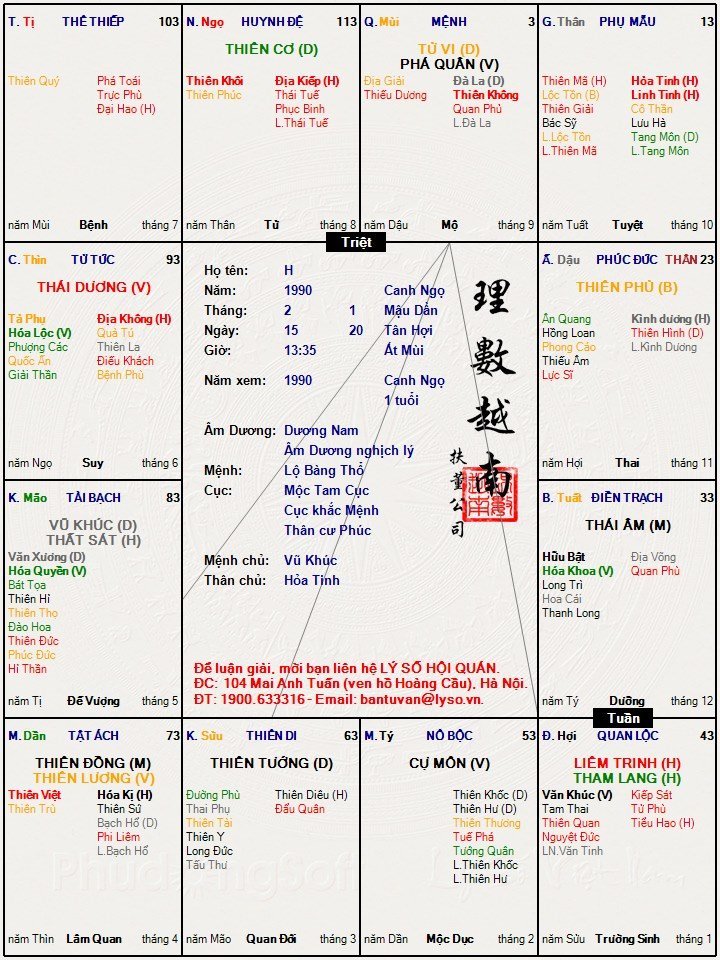 T. Tị THÊ THIẾP 103
Thiên Quý Phá Toái
Trực Phù
Đại Hao (H)
năm Mùi Bệnh tháng 7
N. Ngọ HUYNH ĐỆ 113
THIÊN CƠ (D)
Thiên Khôi Địa Kiếp (H)
Thiên Phúc Thái Tuế
Phục Binh
L.Thái Tuế
năm Thân Tử tháng 8
Q. Mùi MỆNH 3
TỬ VI (D)
PHÁ QUÂN (V)
Địa Giải Đà La (D)
Thiếu Dương Thiên Không
Quan Phủ
L.Đà La
năm Dậu Mộ tháng 9
G. Thân PHỤ MẪU 13
Thiên Mã (H) Hỏa Tinh (H)
Lộc Tồn (B) Linh Tinh (H)
Thiên Giải Cô Thần
Bác Sỹ Lưu Hà
L.Lộc Tồn Tang Môn (D)
L.Thiên Mã L.Tang Môn
năm Tuất Tuyệt tháng 10
Triệt
C. Thìn TỬ TỨC 93
THÁI DƯƠNG (V)
Tả Phụ Địa Không (H)
Hóa Lộc (V) Quả Tú
Phượng Các Thiên La
Quốc Ấn Điếu Khách
Giải Thần Bệnh Phù
năm Ngọ Suy tháng 6
Họ tên: H
Năm: 1990 Canh Ngọ
Tháng: 2 1 Mậu Dần
Ngày: 15 20 Tân Hợi
Giờ: 13:35 Ất Mùi
Năm xem: 1990 Canh Ngọ
1 tuổi
Âm Dương: Dương Nam
Âm Dương nghịch lý
Mệnh: Lộ Bàng Thổ
Cục: Mộc Tam Cục
Cục khắc Mệnh
Thân cư Phúc
Mệnh chủ: Vũ Khúc
Thân chủ: Hỏa Tinh
理數越南
扶董公司
Để luận giải, mời bạn liên hệ LÝ SỐ HỘI QUÁN.
ĐC: 104 Mai Anh Tuấn (ven hồ Hoàng Cầu), Hà Nội.
ĐT: 1900.633316 - Email: bantuvan@lyso.vn.
Ấ. Dậu PHÚC ĐỨC THÂN 23
THIÊN PHỦ (B)
Ân Quang Kình dương (H)
Hồng Loan Thiên Hình (D)
Phong Cáo L.Kình Dương
Thiếu Âm
Lực Sĩ
năm Hợi Thai tháng 11
K. Mão TÀI BẠCH 83
VŨ KHÚC (D)
THẤT SÁT (H)
Văn Xương (D)
Hóa Quyền (V)
Bát Tọa
Thiên Hỉ
Thiên Thọ
Đào Hoa
Thiên Đức
Phúc Đức
Hỉ Thần
năm Tị Đế Vượng tháng 5
B. Tuất ĐIỀN TRẠCH 33
THÁI ÂM (M)
Hữu Bật Địa Võng
Hóa Khoa (V) Quan Phù
Long Trì
Hoa Cái
Thanh Long
năm Tý Dưỡng tháng 12
Tuần
M. Dần TẬT ÁCH 73
THIÊN ĐỒNG (M)
THIÊN LƯƠNG (V)
Thiên Việt Hóa Kị (H)
Thiên Trù Thiên Sứ
Bạch Hổ (D)
Phi Liêm
L.Bạch Hổ
năm Thìn Lâm Quan tháng 4
K. Sửu THIÊN DI 63
THIÊN TƯỚNG (D)
Đường Phù Thiên Diêu (H)
Thai Phụ Đẩu Quân
Thiên Tài
Thiên Y
Long Đức
Tấu Thư
năm Mão Quan Đới tháng 3
M. Tý NÔ BỘC 53
CỰ MÔN (V)
Thiên Khốc (D)
Thiên Hư (D)
Thiên Thương
Tuế Phá
Tướng Quân
L.Thiên Khốc
L.Thiên Hư
năm Dần Mộc Dục tháng 2
Đ. Hợi QUAN LỘC 43
LIÊM TRINH (H)
THAM LANG (H)
Văn Khúc (V) Kiếp Sát
Tam Thai Tử Phù
Thiên Quan Tiểu Hao (H)
Nguyệt Đức
LN.Văn Tinh
năm Sửu Trường Sinh tháng 1